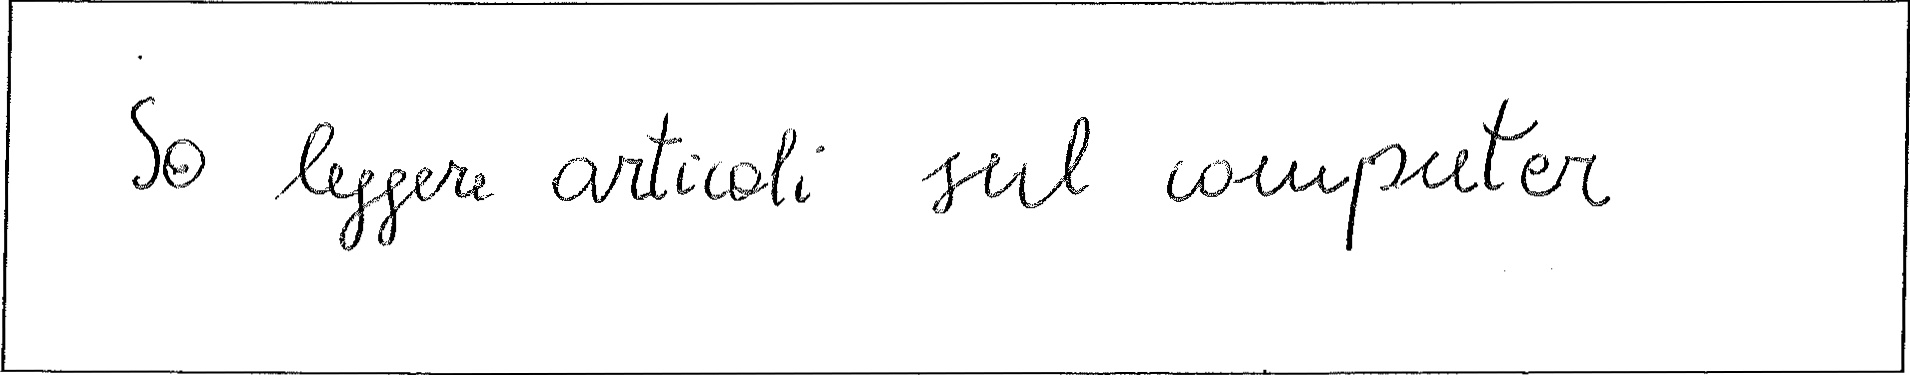 So leggere articoli sul computer